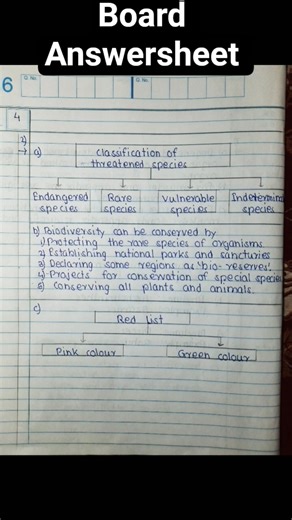 Board
Answersheet
6
Q.No.
Q.No.
4
2)
→ a) Classification of
threatened species
Endangered species
Rare species
Vulnerable species
Indetermina species
b) Biodiversity can be conserved by
1) Protecting the rare species of organisms.
2) Establishing national parks and sancturies
3) Declaring some regions as 'bio-reserves'.
4) Projects for conservation of special species
5) Conserving all plants and animals.
c) Red List
Pink colour
Green colour